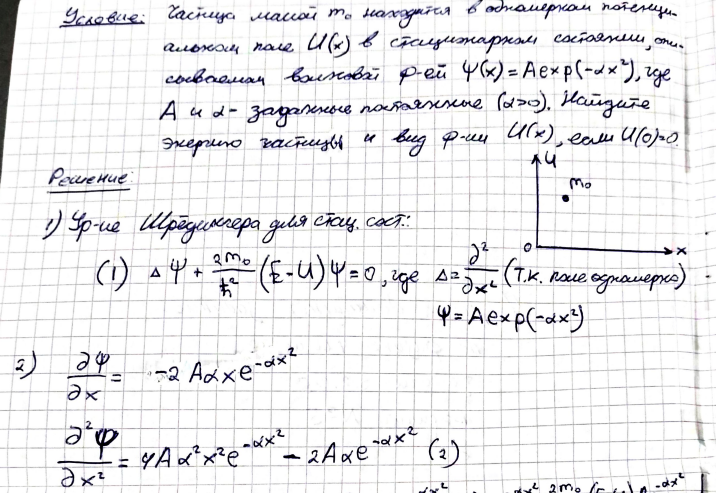 Условие: Частица массой m₀ находится в одномерном потенци-
альном поле U(x) в стационарном состоянии, опи-
сываемом волновой ф-ей Ψ(x) = Aexp(-αx²), где
A и α - заданные постоянные (α>0). Найдите
энергию частицы и вид ф-ии U(x), если U(0)=0.
Решение:
U
m₀
0
x
1) Ур-ие Шрёдингера для стац. сост.:
(1) ΔΨ + 2m₀/ħ² (E-U)Ψ = 0, где Δ = ∂²/∂x² (т.к. поле одномерно)
Ψ = Aexp(-αx²)
2) ∂Ψ/∂x = -2Aαxe^(-αx²)
∂²Ψ/∂x² = 4Aα²x²e^(-αx²) - 2Aαe^(-αx²) (2)